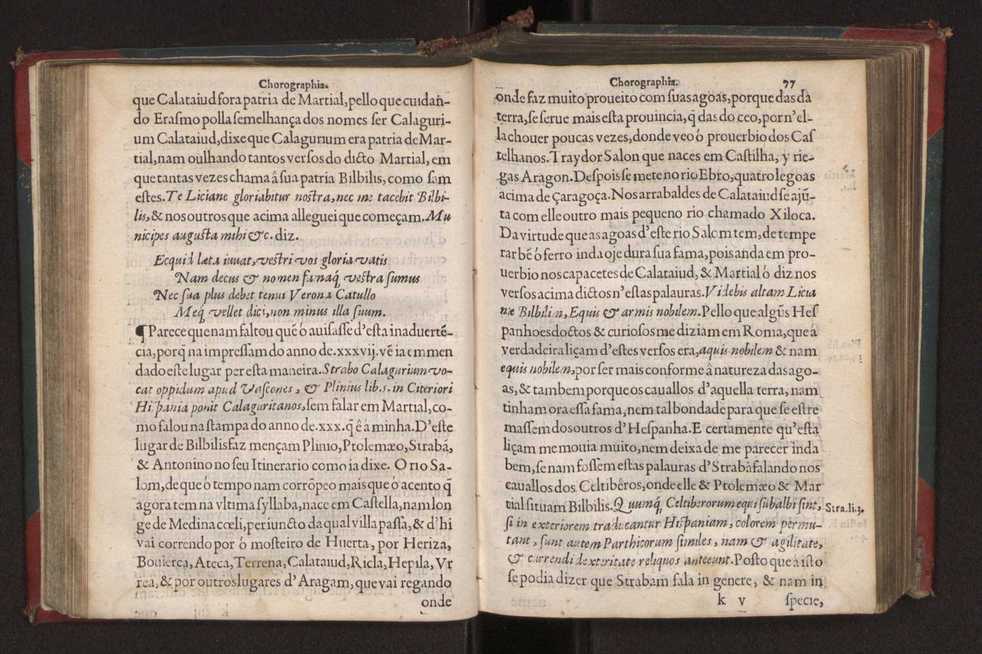 Chorographia.
que Calataiud fora patria de Martial, pello que cuidan-
do Erasmo polla semelhança dos nomes ser Calaguri-
um Calataiud, dixe que Calagurium era patria de Mar-
tial, nam oulhando tantos versos do dicto Martial, em
que tantas vezes chama â sua patria Bilbilis, como sam
estes. Te Liciane gloriabitur nostra, nec me tacebit Bilbi-
lis, & nos outros que acima alleguei que começam. Mu
nicipes augusta mihi &c. diz.
Ecquid læta iuuat, vestri vos gloria vatis
Nam decus & nomen famaq̃ vestra sumus
Nec sua plus debet tenui Verona Catullo
Meq̃ vellet dici, non minus illa suum.
¶ Parece que nam faltou quẽ o auisasse d'esta inaduertẽ-
cia, porq̃ na impressam do anno de .xxxvij. vẽ ia emmen
dado este lugar per esta maneira. Strabo Calagurium vo-
cat oppidum apud Vascones, & Plinius lib. 3. in Citeriori
Hispania ponit Calaguritanos, sem falar em Martial, co-
mo falou na stampa do anno de .xxx. q̃ ê a minha. D'este
lugar de Bilbilis faz mençam Plinio, Ptolemæo, Strabã,
& Antonino no seu Itinerario como ia dixe. O rio Sa-
lom, de que o tempo nam corrõpeo mais que o acento q̃
agora tem na vltima syllaba, nace em Castella, nam lon
ge de Medina cœli, per iuncto da qual villa passa, & d'hi
vai correndo por o mosteiro de Huerta, por Heriza,
Bouierca, Ateca, Terrena, Calataiud, Ricla, Hepila, Vr
rea, & por outros lugares d'Aragam, que vai regando
onde
Chorographia. 77
onde faz muito proueito com suas agoas, porque das da
terra, se serue mais esta prouincia, q̃ das do ceo, por n'el-
la chouer poucas vezes, donde veo o prouerbio dos Cas
telhanos. Traydor Salon que naces em Castilha, y rie-
gas Aragon. Despois se mete no rio Ebro, quatro legoas
acima de Çaragoça. Nos arrabaldes de Calataiud se ajũ-
ta com elle outro mais pequeno rio chamado Xiloca.
Da virtude que as agoas d'este rio Salom tem, de tempe
rar bẽ o ferro inda oje dura sua fama, pois anda em pro-
uerbio nos capacetes de Calataiud, & Martial o diz nos
versos acima dictos n'estas palauras. Videbis altam Licia
ne Bilbilin, Equis & armis nobilem. Pello que algũs Hes
panhoes doctos & curiosos me diziam em Roma, que a
verdadeira liçam d'estes versos era, aquis nobilem & nam
equis nobilem, por ser mais conforme â natureza das ago-
as, & tambem porque os cauallos d'aquella terra, nam
tinham ora essa fama, nem tal bondade para que se estre
massem dos outros d'Hespanha. E certamente qu'esta
liçam me mouia muito, nem deixa de me parecer inda
bem, se nam fossem estas palauras d'Strabã falando nos
cauallos dos Celtibêros, onde elle & Ptolemæo & Mar
tial situam Bilbilis. Quumq̃ Celtiberorum equi subalbi sint,
Stra. li. 3.
si in exteriorem traducantur Hispaniam, colorem permu-
tant, sunt autem Parthicorum similes, nam & agilitate,
& currendi dexteritate reliquos anteeunt. Posto que a isto
se podia dizer que Strabam fala in genere, & nam in
k v specie,